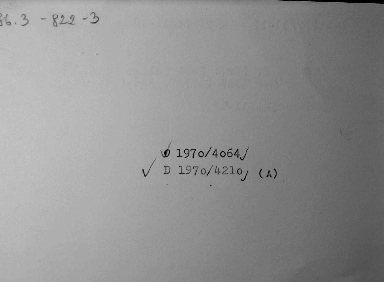 86.3 - 822 - 3
D 1970/4064/
✓ D 1970/4210, (A)